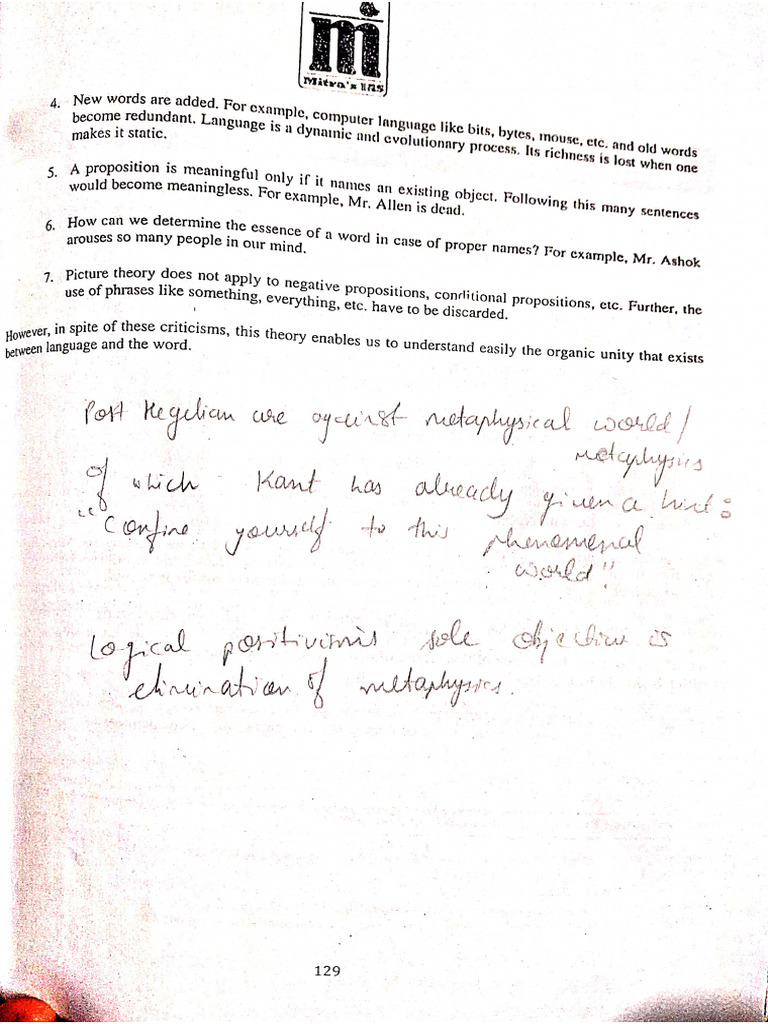 m
Mitra's IAS
4. New words are added. For example, computer language like bits, bytes, mouse, etc. and old words
become redundant. Language is a dynamic and evolutionary process. Its richness is lost when one
makes it static.
5. A proposition is meaningful only if it names an existing object. Following this many sentences
would become meaningless. For example, Mr. Allen is dead.
6. How can we determine the essence of a word in case of proper names? For example, Mr. Ashok
arouses so many people in our mind.
7. Picture theory does not apply to negative propositions, conditional propositions, etc. Further, the
use of phrases like something, everything, etc. have to be discarded.
However, in spite of these criticisms, this theory enables us to understand easily the organic unity that exists
between language and the word.
Post Hegelian are against metaphysical world/
metaphysics
of which Kant has already given a hint:
"Confine yourself to this phenomenal
world"
Logical positivism's sole objective is
elimination of metaphysics.
129